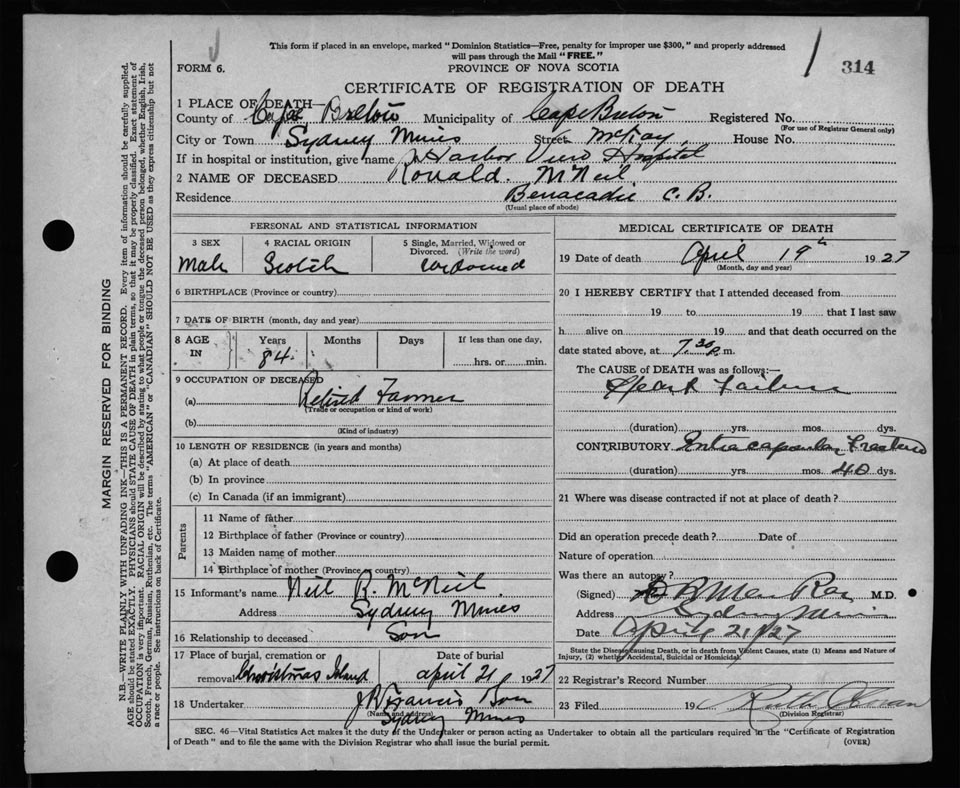 This form if placed in an envelope, marked "Dominion Statistics—Free, penalty for improper use $300," and properly addressed
will pass through the Mail "FREE."
FORM 6. PROVINCE OF NOVA SCOTIA 314
CERTIFICATE OF REGISTRATION OF DEATH
1 PLACE OF DEATH—
County of Cape Breton Municipality of Cape Breton Registered No.
(For use of Registrar General only)
City or Town Sydney Mines Street McKay House No.
If in hospital or institution, give name Harbor View Hospital
2 NAME OF DECEASED Ronald McNeil
Residence Benacadie C. B.
(Usual place of abode)
PERSONAL AND STATISTICAL INFORMATION
3 SEX 4 RACIAL ORIGIN 5 Single, Married, Widowed or Divorced. (Write the word)
Male Scotch widowed
6 BIRTHPLACE (Province or country)
7 DATE OF BIRTH (month, day and year)
8 AGE IN Years Months Days If less than one day,
84 hrs. or min.
9 OCCUPATION OF DECEASED
(a) Retired Farmer
(Trade or occupation or kind of work)
(b)
(Kind of industry)
10 LENGTH OF RESIDENCE (in years and months)
(a) At place of death
(b) In province
(c) In Canada (if an immigrant)
Parents
11 Name of father
12 Birthplace of father (Province or country)
13 Maiden name of mother
14 Birthplace of mother (Province or country)
15 Informant's name Neil R. McNeil
Address Sydney Mines
16 Relationship to deceased Son
17 Place of burial, cremation or removal Date of burial
Christmas Island April 21 1927
18 Undertaker J R Francis Son
(Name and address)
Sydney Mines
MEDICAL CERTIFICATE OF DEATH
19 Date of death April 19th 1927
(Month, day and year)
20 I HEREBY CERTIFY that I attended deceased from
19 to 19 that I last saw
h alive on 19 and that death occurred on the
date stated above, at 7.30 p.m.
The CAUSE of DEATH was as follows:—
Heart Failure
(duration) yrs. mos. dys.
CONTRIBUTORY Intracapsular Fracture
(duration) yrs. mos. 40 dys.
21 Where was disease contracted if not at place of death?
Did an operation precede death? Date of
Nature of operation
Was there an autopsy?
(Signed) M.D.
Address Sydney Mines
Date April 21/27
State the Disease causing Death, or in death from Violent Causes, state (1) Means and Nature of
Injury, (2) whether Accidental, Suicidal or Homicidal.
22 Registrar's Record Number
23 Filed 19
(Division Registrar)
SEC. 46—Vital Statistics Act makes it the duty of the Undertaker or person acting as Undertaker to obtain all the particulars required in the "Certificate of Registration
of Death" and to file the same with the Division Registrar who shall issue the burial permit.
(OVER)
MARGIN RESERVED FOR BINDING
N.B.—WRITE PLAINLY WITH UNFADING INK—THIS IS A PERMANENT RECORD. Every item of information should be carefully supplied.
AGE should be stated EXACTLY. PHYSICIANS should STATE CAUSE OF DEATH in plain terms, so that it may be properly classified. Exact statement of
OCCUPATION is very important. RACIAL ORIGIN will be described by stating to what people or tongue the deceased person belonged, whether English, Irish,
Scotch, French, German, Russian, Ruthenian, etc. The terms "AMERICAN" or "CANADIAN" SHOULD NOT BE USED as they express citizenship but not
a race or people. See instructions on back of Certificate.